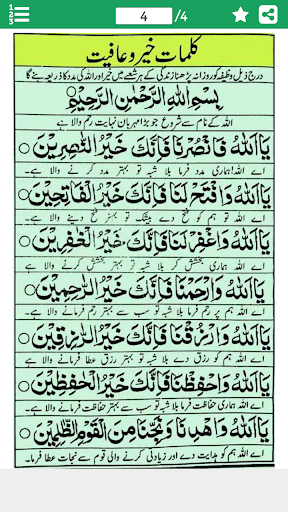 4 /4
کلمات خیر و عافیت
درج ذیل وظیفہ کو روزانہ پڑھنا زندگی کے ہر شعبے میں خیر اور اللہ کی مدد کا ذریعہ بنے گا
بِسْمِ اللهِ الرَّحْمٰنِ الرَّحِيْمِ
اللہ کے نام سے شروع جو بڑا مہربان نہایت رحم والا ہے
يَا اَللهُ فَانْصُرْنَا فَاِنَّكَ خَيْرُ النّٰصِرِيْنَ
اے اللہ! ہماری مدد فرما بلا شبہ تو بہتر مدد کرنے والا ہے۔
يَا اَللهُ وَافْتَحْ لَنَا فَاِنَّكَ خَيْرُ الْفَاتِحِيْنَ
اے اللہ تو ہم کو فتح دے بیشک تو بہتر فتح دینے والا ہے۔
يَا اَللهُ وَاغْفِرْ لَنَا فَاِنَّكَ خَيْرُ الْغٰفِرِيْنَ
اے اللہ ہماری بخشش کر بلا شبہ تو بہتر بخشش کرنے والا ہے۔
يَا اَللهُ وَارْحَمْنَا فَاِنَّكَ خَيْرُ الرّٰحِمِيْنَ
اے اللہ ہم پر رحم فرما بلا شبہ تو سب سے بہتر رحم فرمانے والا ہے۔
يَا اَللهُ وَارْزُقْنَا فَاِنَّكَ خَيْرُ الرّٰزِقِيْنَ
اے اللہ ہم کو رزق دے بلا شبہ تو بہتر رزق عطا فرمانے والا ہے۔
يَا اَللهُ وَاحْفِظْنَا فَاِنَّكَ خَيْرُ الْحٰفِظِيْنَ
اے اللہ ہماری حفاظت فرما بلا شبہ تو سب سے بہتر حفاظت فرمانے والا ہے۔
يَا اَللهُ وَاهْدِنَا وَنَجِّنَا مِنَ الْقَوْمِ الظّٰلِمِيْنَ
اے اللہ ہم کو ہدایت دے اور زیادتی کرنے والی قوم سے نجات عطا فرما۔